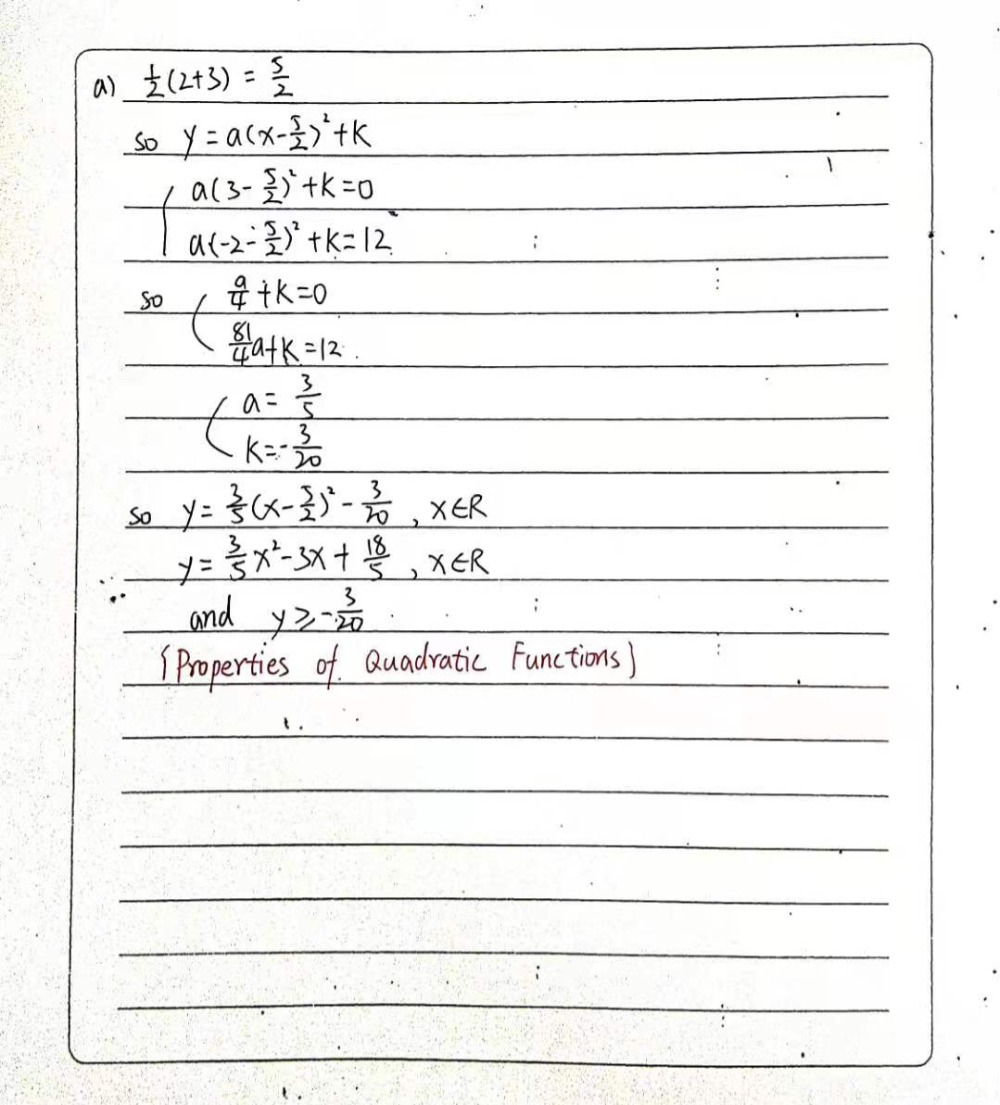 a) ½(2+3) = 5/2
so y = a(x-5/2)²+K
a(3-5/2)²+K=0
a(-2-5/2)²+K=12
so a/4 +K=0
81/4 a+K=12.
a= 3/5
K=-3/20
so y= 3/5(x-5/2)²-3/20, x∈R
y= 3/5x²-3x+18/5, x∈R
and y≥-3/20
{Properties of Quadratic Functions}